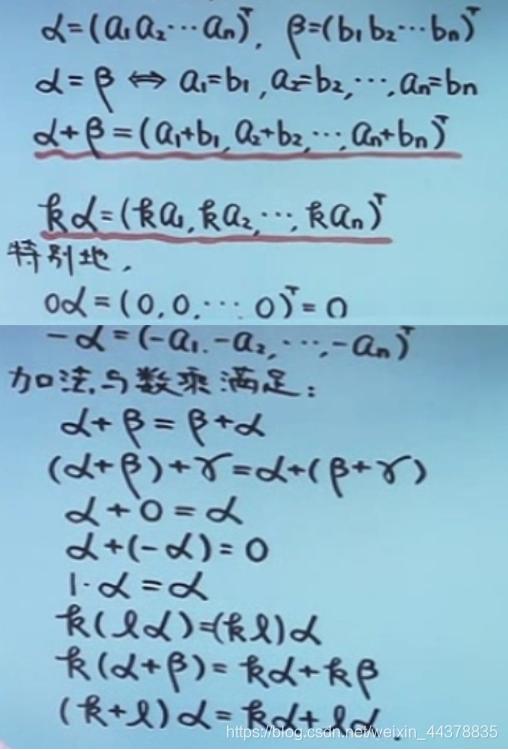 α=(a₁ a₂ ⋯ aₙ)ᵀ, β=(b₁ b₂ ⋯ bₙ)ᵀ
α=β ⇔ a₁=b₁, a₂=b₂, ⋯, aₙ=bₙ
α+β=(a₁+b₁, a₂+b₂, ⋯, aₙ+bₙ)ᵀ
kα=(ka₁, ka₂, ⋯, kaₙ)ᵀ
特别地,
0α=(0, 0, ⋯ 0)ᵀ=0
-α=(-a₁, -a₂, ⋯, -aₙ)ᵀ
加法与数乘满足:
α+β=β+α
(α+β)+γ=α+(β+γ)
α+0=α
α+(-α)=0
1·α=α
k(lα)=(kl)α
k(α+β)=kα+kβ
(k+l)α=kα+lα.
https://blog.csdn.net/weixin_44378835